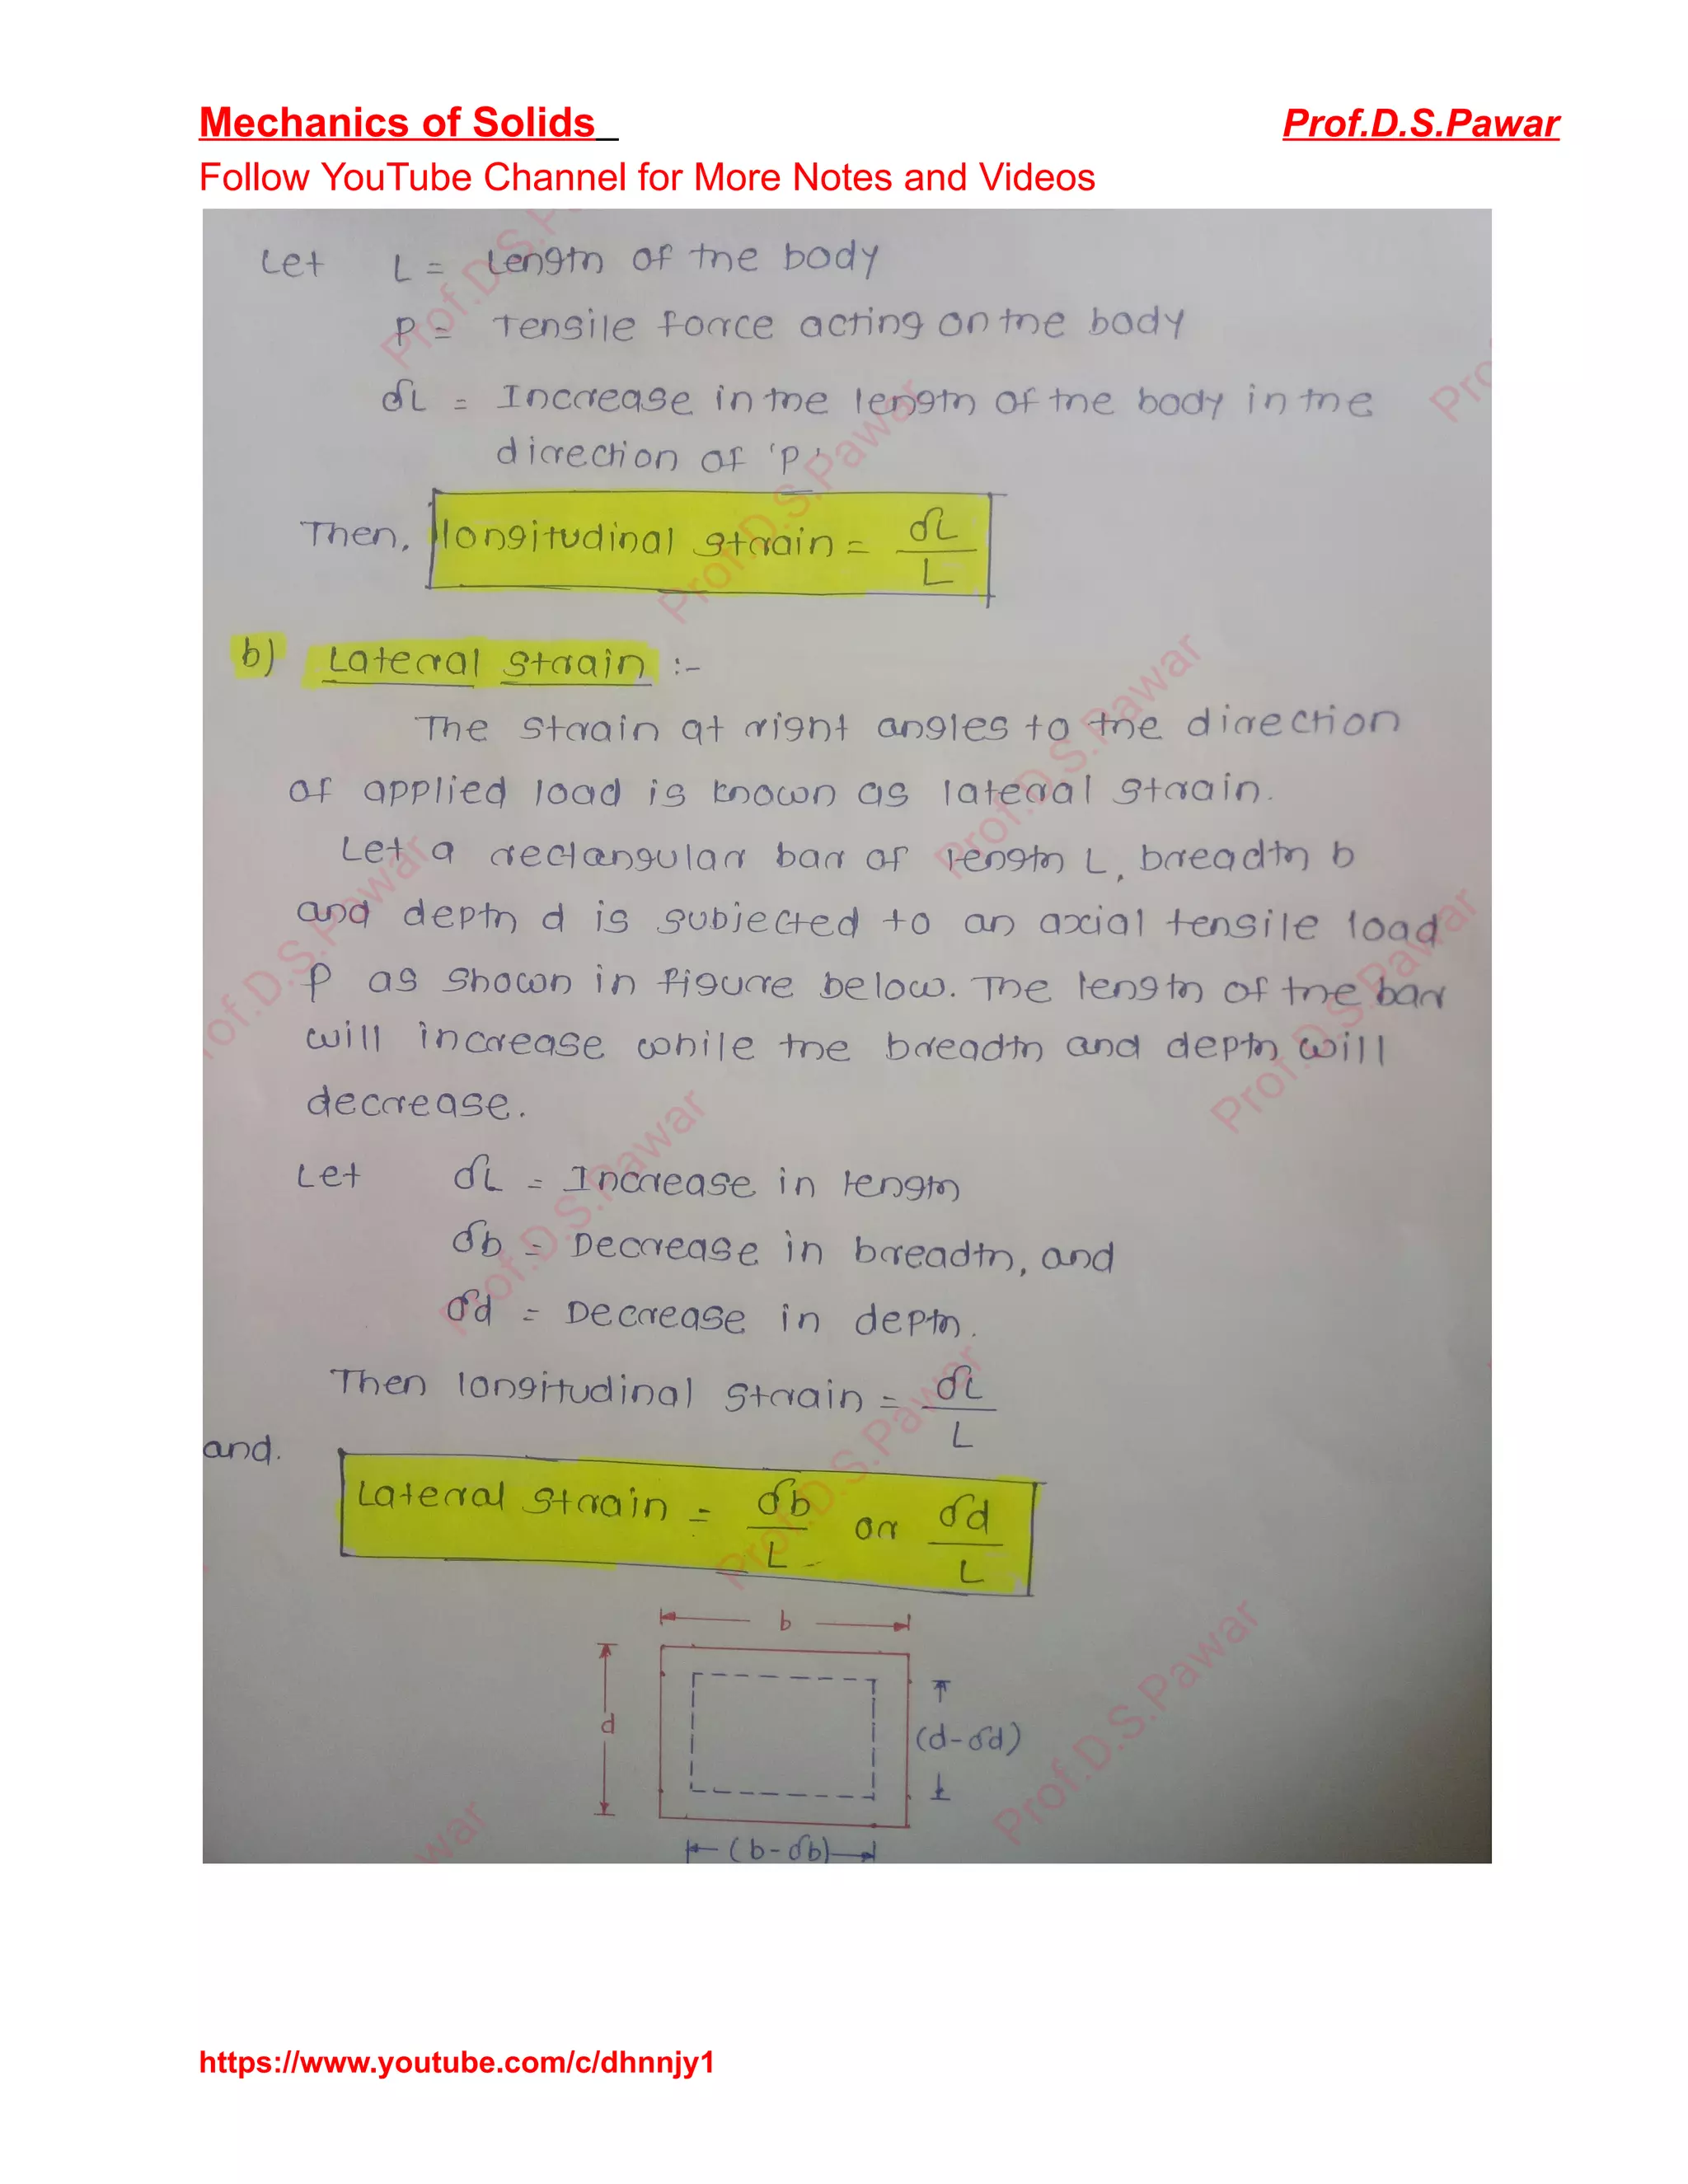 Mechanics of Solids Prof.D.S.Pawar
Follow YouTube Channel for More Notes and Videos
Let L = Length of the body
P = Tensile force acting on the body
δL = Increase in the length of the body in the
direction of 'P'
Then, longitudinal strain = δL/L
b) Lateral strain :-
The strain at right angles to the direction
of applied load is known as lateral strain.
Let a rectangular bar of length L, breadth b
and depth d is subjected to an axial tensile load
P as shown in figure below. The length of the bar
will increase while the breadth and depth will
decrease.
Let δL = Increase in length
δb = Decrease in breadth, and
δd = Decrease in depth.
Then longitudinal strain = δL/L
and.
Lateral strain = δb/L or δd/L
b
d
(d-δd)
(b-δb)
Prof.D.S.Pawar
https://www.youtube.com/c/dhnnjy1